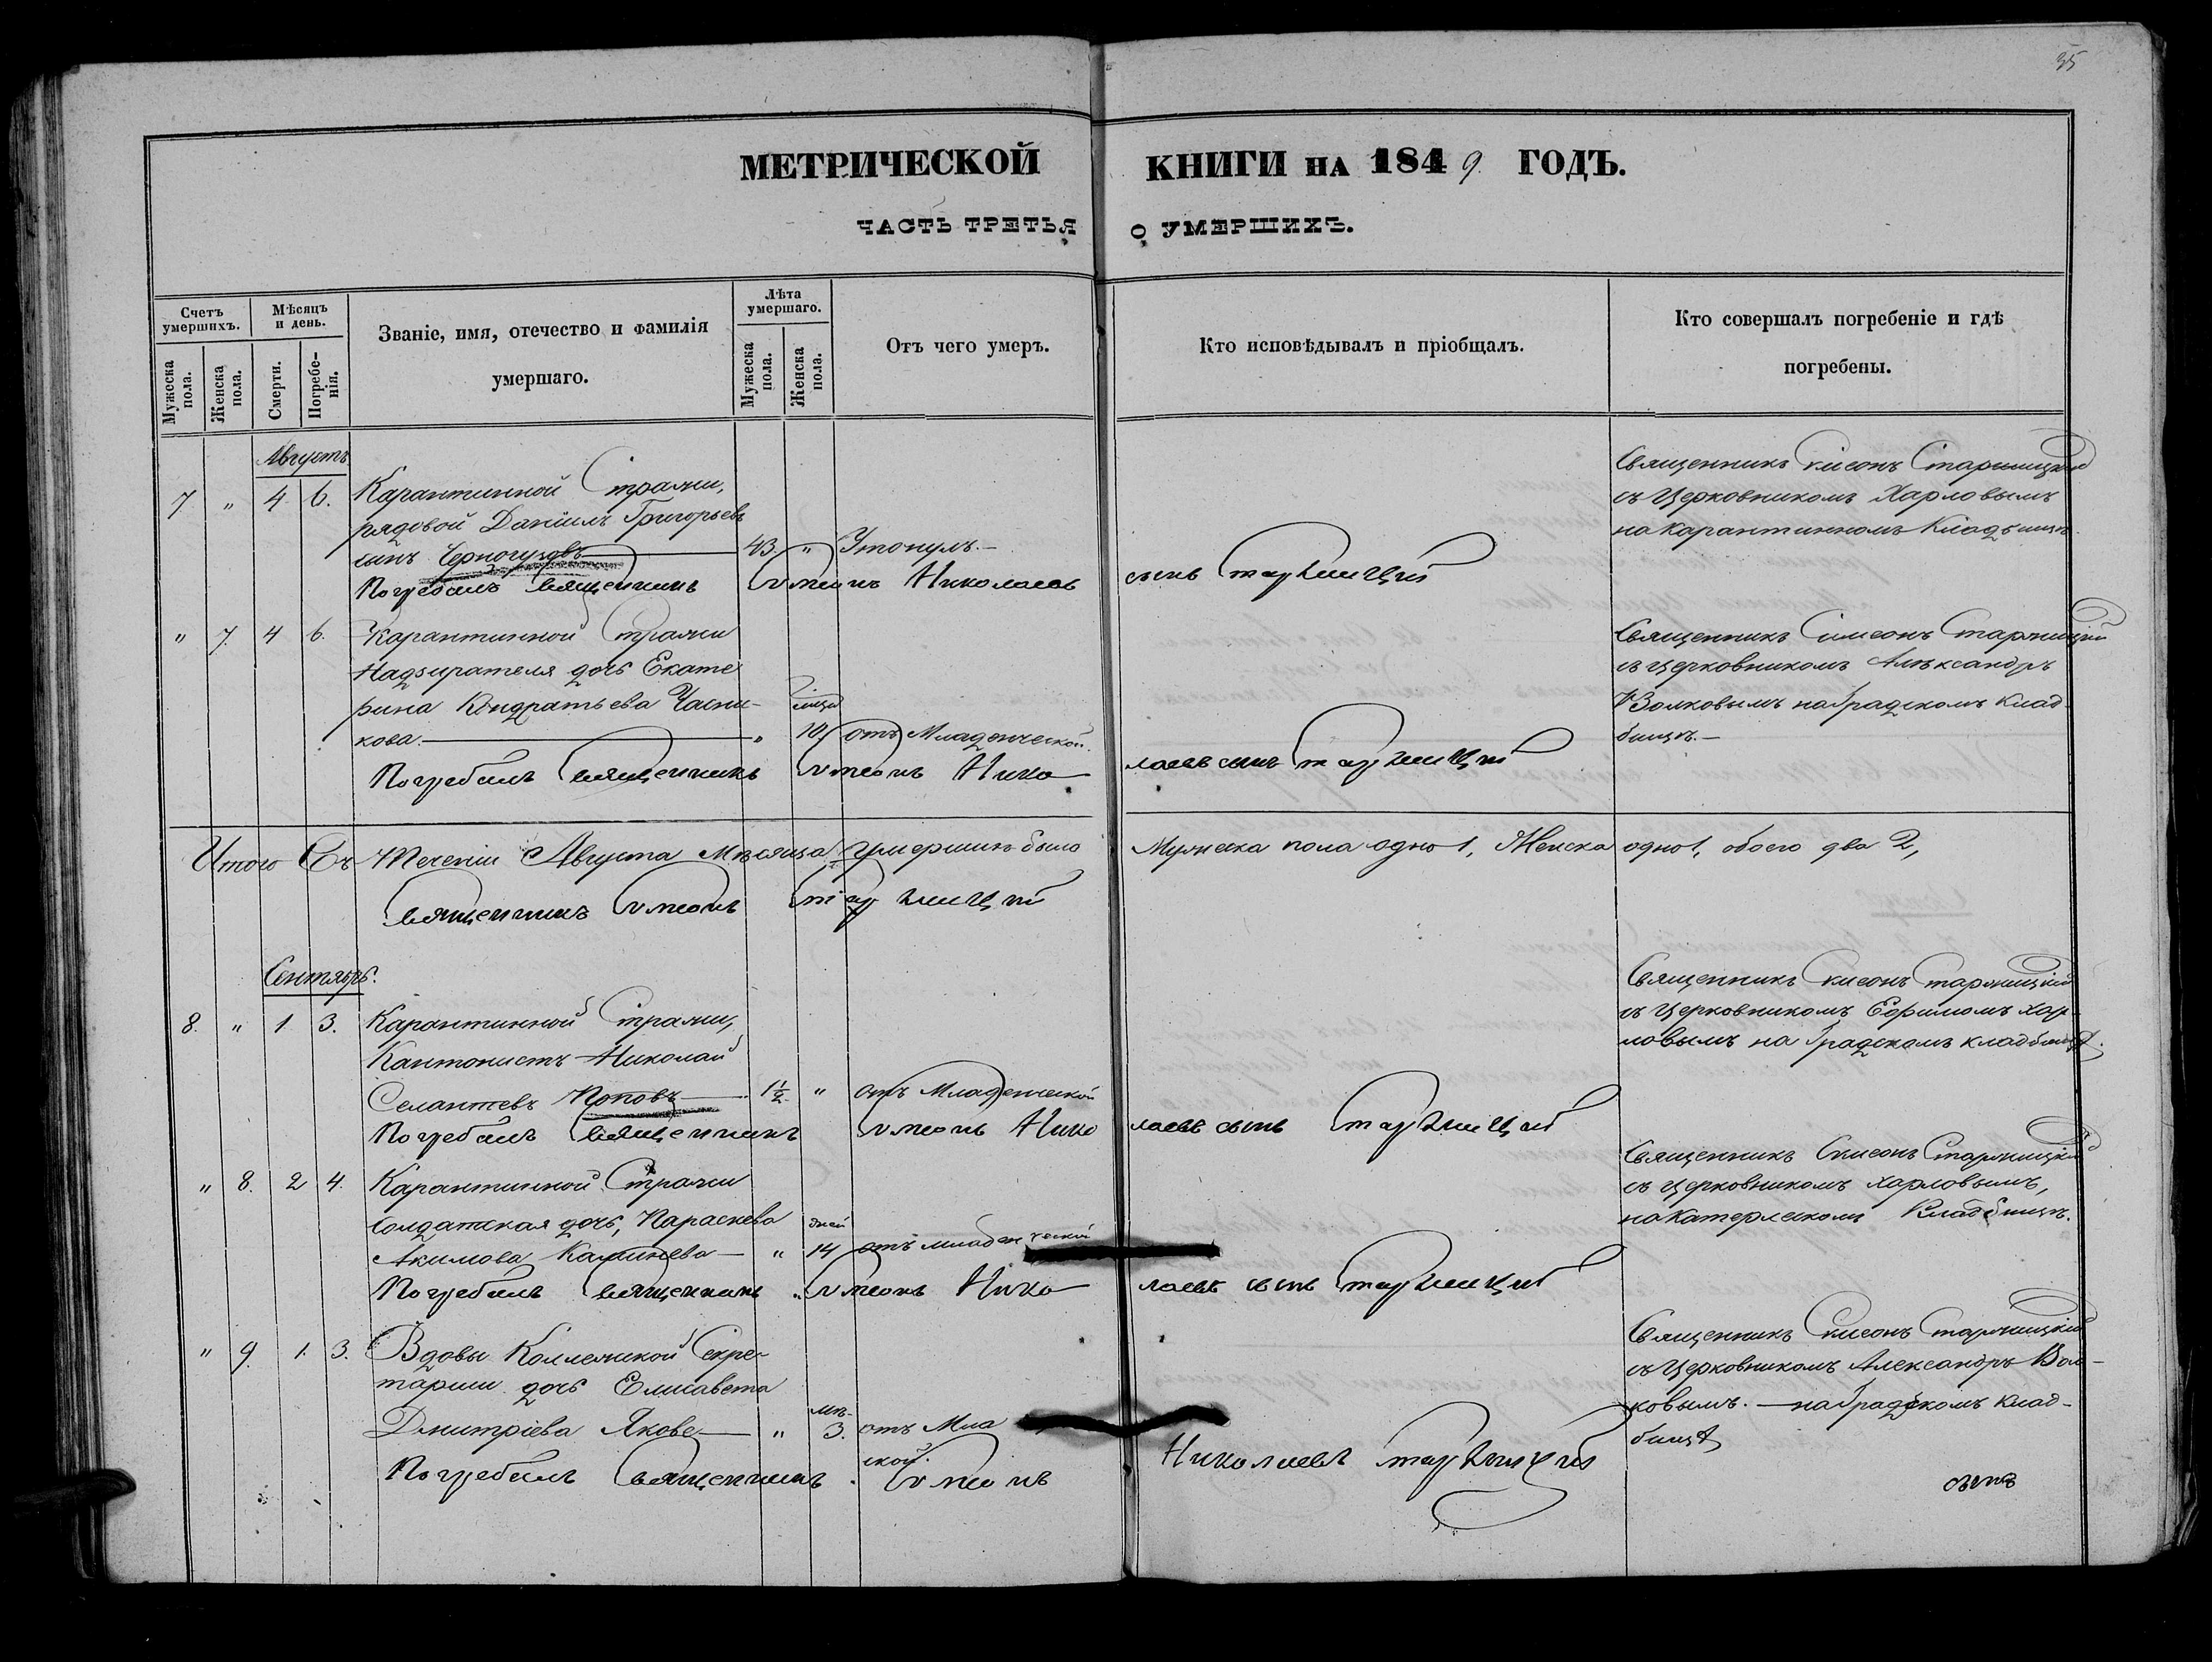 35
МЕТРИЧЕСКОЙ КНИГИ НА 1849 ГОДЪ.
ЧАСТЬ ТРЕТЬЯ О УМЕРШИХЪ.
Счетъ умершихъ.
Мужеска пола.
Женска пола.
Мѣсяцъ и день.
Смерти.
Погребенія.
Званіе, имя, отечество и фамилія
умершаго.
Лѣта умершаго.
Мужеска пола.
Женска пола.
Отъ чего умеръ.
Кто исповѣдывалъ и пріобщалъ.
Кто совершалъ погребеніе и гдѣ
погребены.
Августъ
7 " 4 6. Карантинной Стражи,
рядовой Даніилъ Григорьевъ
сынъ Черногузовъ 43. " Утонулъ.
Священникъ Симеонъ Старжицкій
съ Церковникомъ Харловымъ
на Карантинномъ Кладбищѣ.
Погребалъ Священникъ Симеонъ Николаевъ сынъ Старжицкій
" 7. 4 6. Карантинной Стражи
Надзирателя дочь Екате
рина Кондратьева Часни-
кова. " 10 отъ Младенческой.
Священникъ Симеонъ Старжицкій
съ церковникомъ Александръ
Волковымъ на Градскомъ Клад
бищѣ.
Погребалъ Священникъ Симеонъ Николаевъ сынъ Старжицкій
Итого Въ Теченіи Августа Мѣсяца умершихъ было Мужеска пола одно 1, Женска одно 1, обоего два 2,
Священникъ Симеонъ Старжицкій
Сентябрь.
8. " 1 3. Карантинной Стражи,
Кантонистъ Николай
Селантевъ Поповъ 1½ " отъ Младенческой
Священникъ Симеонъ Старжицкій
съ Церковникомъ Ефимомъ Хар
ловымъ на Градскомъ кладбищѣ.
Погребалъ Священникъ Симеонъ Николаевъ сынъ Старжицкій
" 8. 2 4. Карантинной Стражи
солдатская дочь, Параскева
Акимова " дней 14 отъ младенческой
Священникъ Симеонъ Старжицкій
съ церковникомъ Харловымъ,
Кладбищѣ.
Погребалъ Священникъ Симеонъ Николаевъ сынъ Старжицкій
" 9. 1. 3. Вдовы Коллежской Секре-
тарши дочь Елисавета
Дмитріева Якове " мѣ. 3. отъ Мла
ской.
Священникъ Симеонъ Старжицкій
съ Церковникомъ Александръ Вол-
ковымъ. на Градскомъ Клад-
бищѣ
Погребалъ Священникъ Симеонъ Николаевъ Старжицкій
сынъ